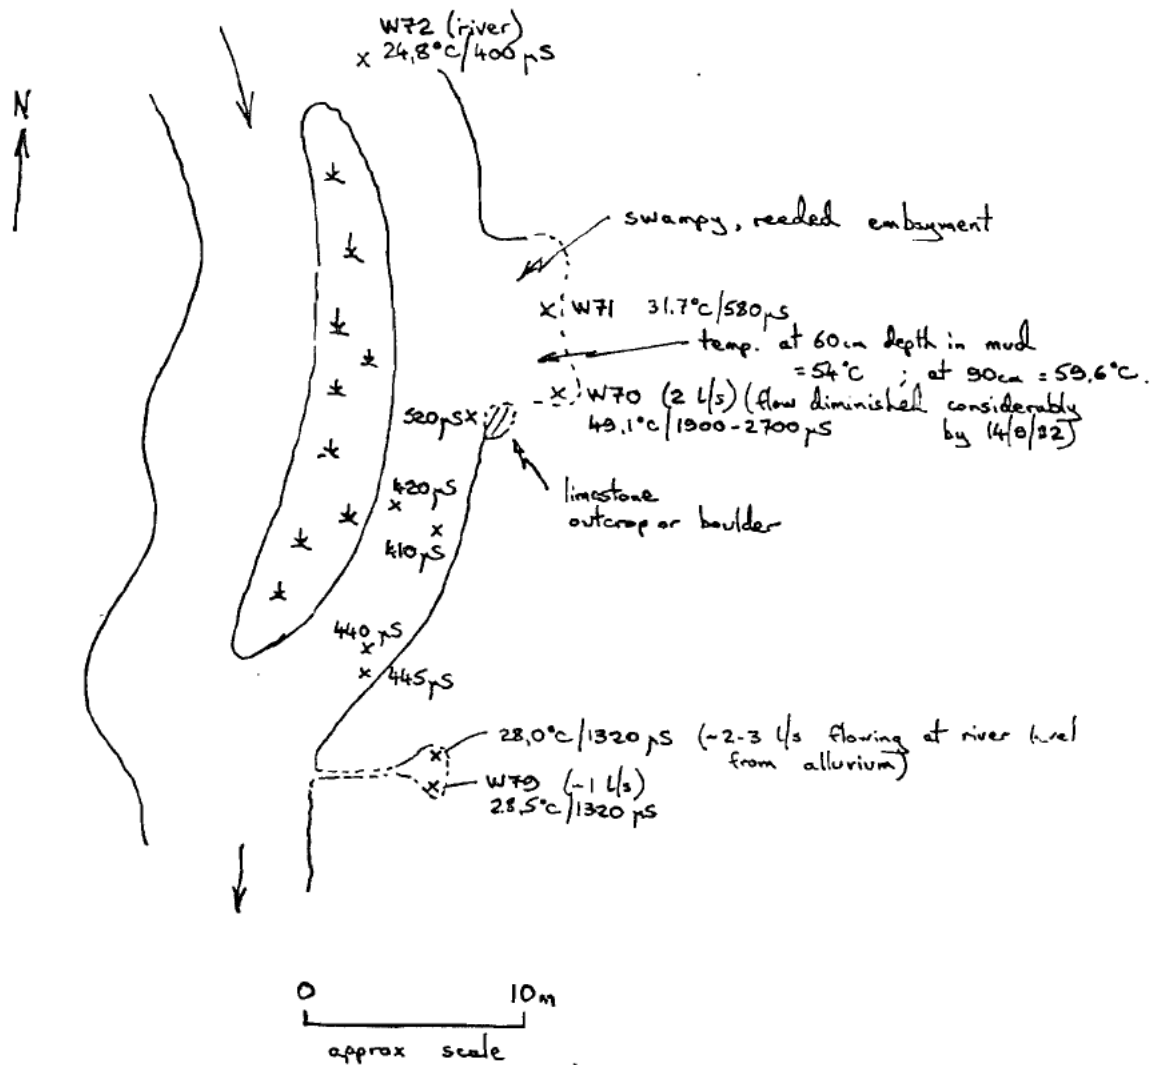 W72 (river)
24,8°C/400 µS
N
swampy, reeded embayment
W71 31.7°C/580µS
temp. at 60cm depth in mud
= 54°C ; at 90cm = 59,6°C.
W70 (2 L/s) (flow diminished considerably
49,1°C/1900-2700µS by 14/8/82)
520µS
limestone
outcrop or boulder
420µS
410µS
440µS
445µS
28,0°C/1320 µS (~2-3 l/s flowing at river level
from alluvium)
W79 (~1 L/s)
28,5°C/1320 µS
0 10m
approx scale